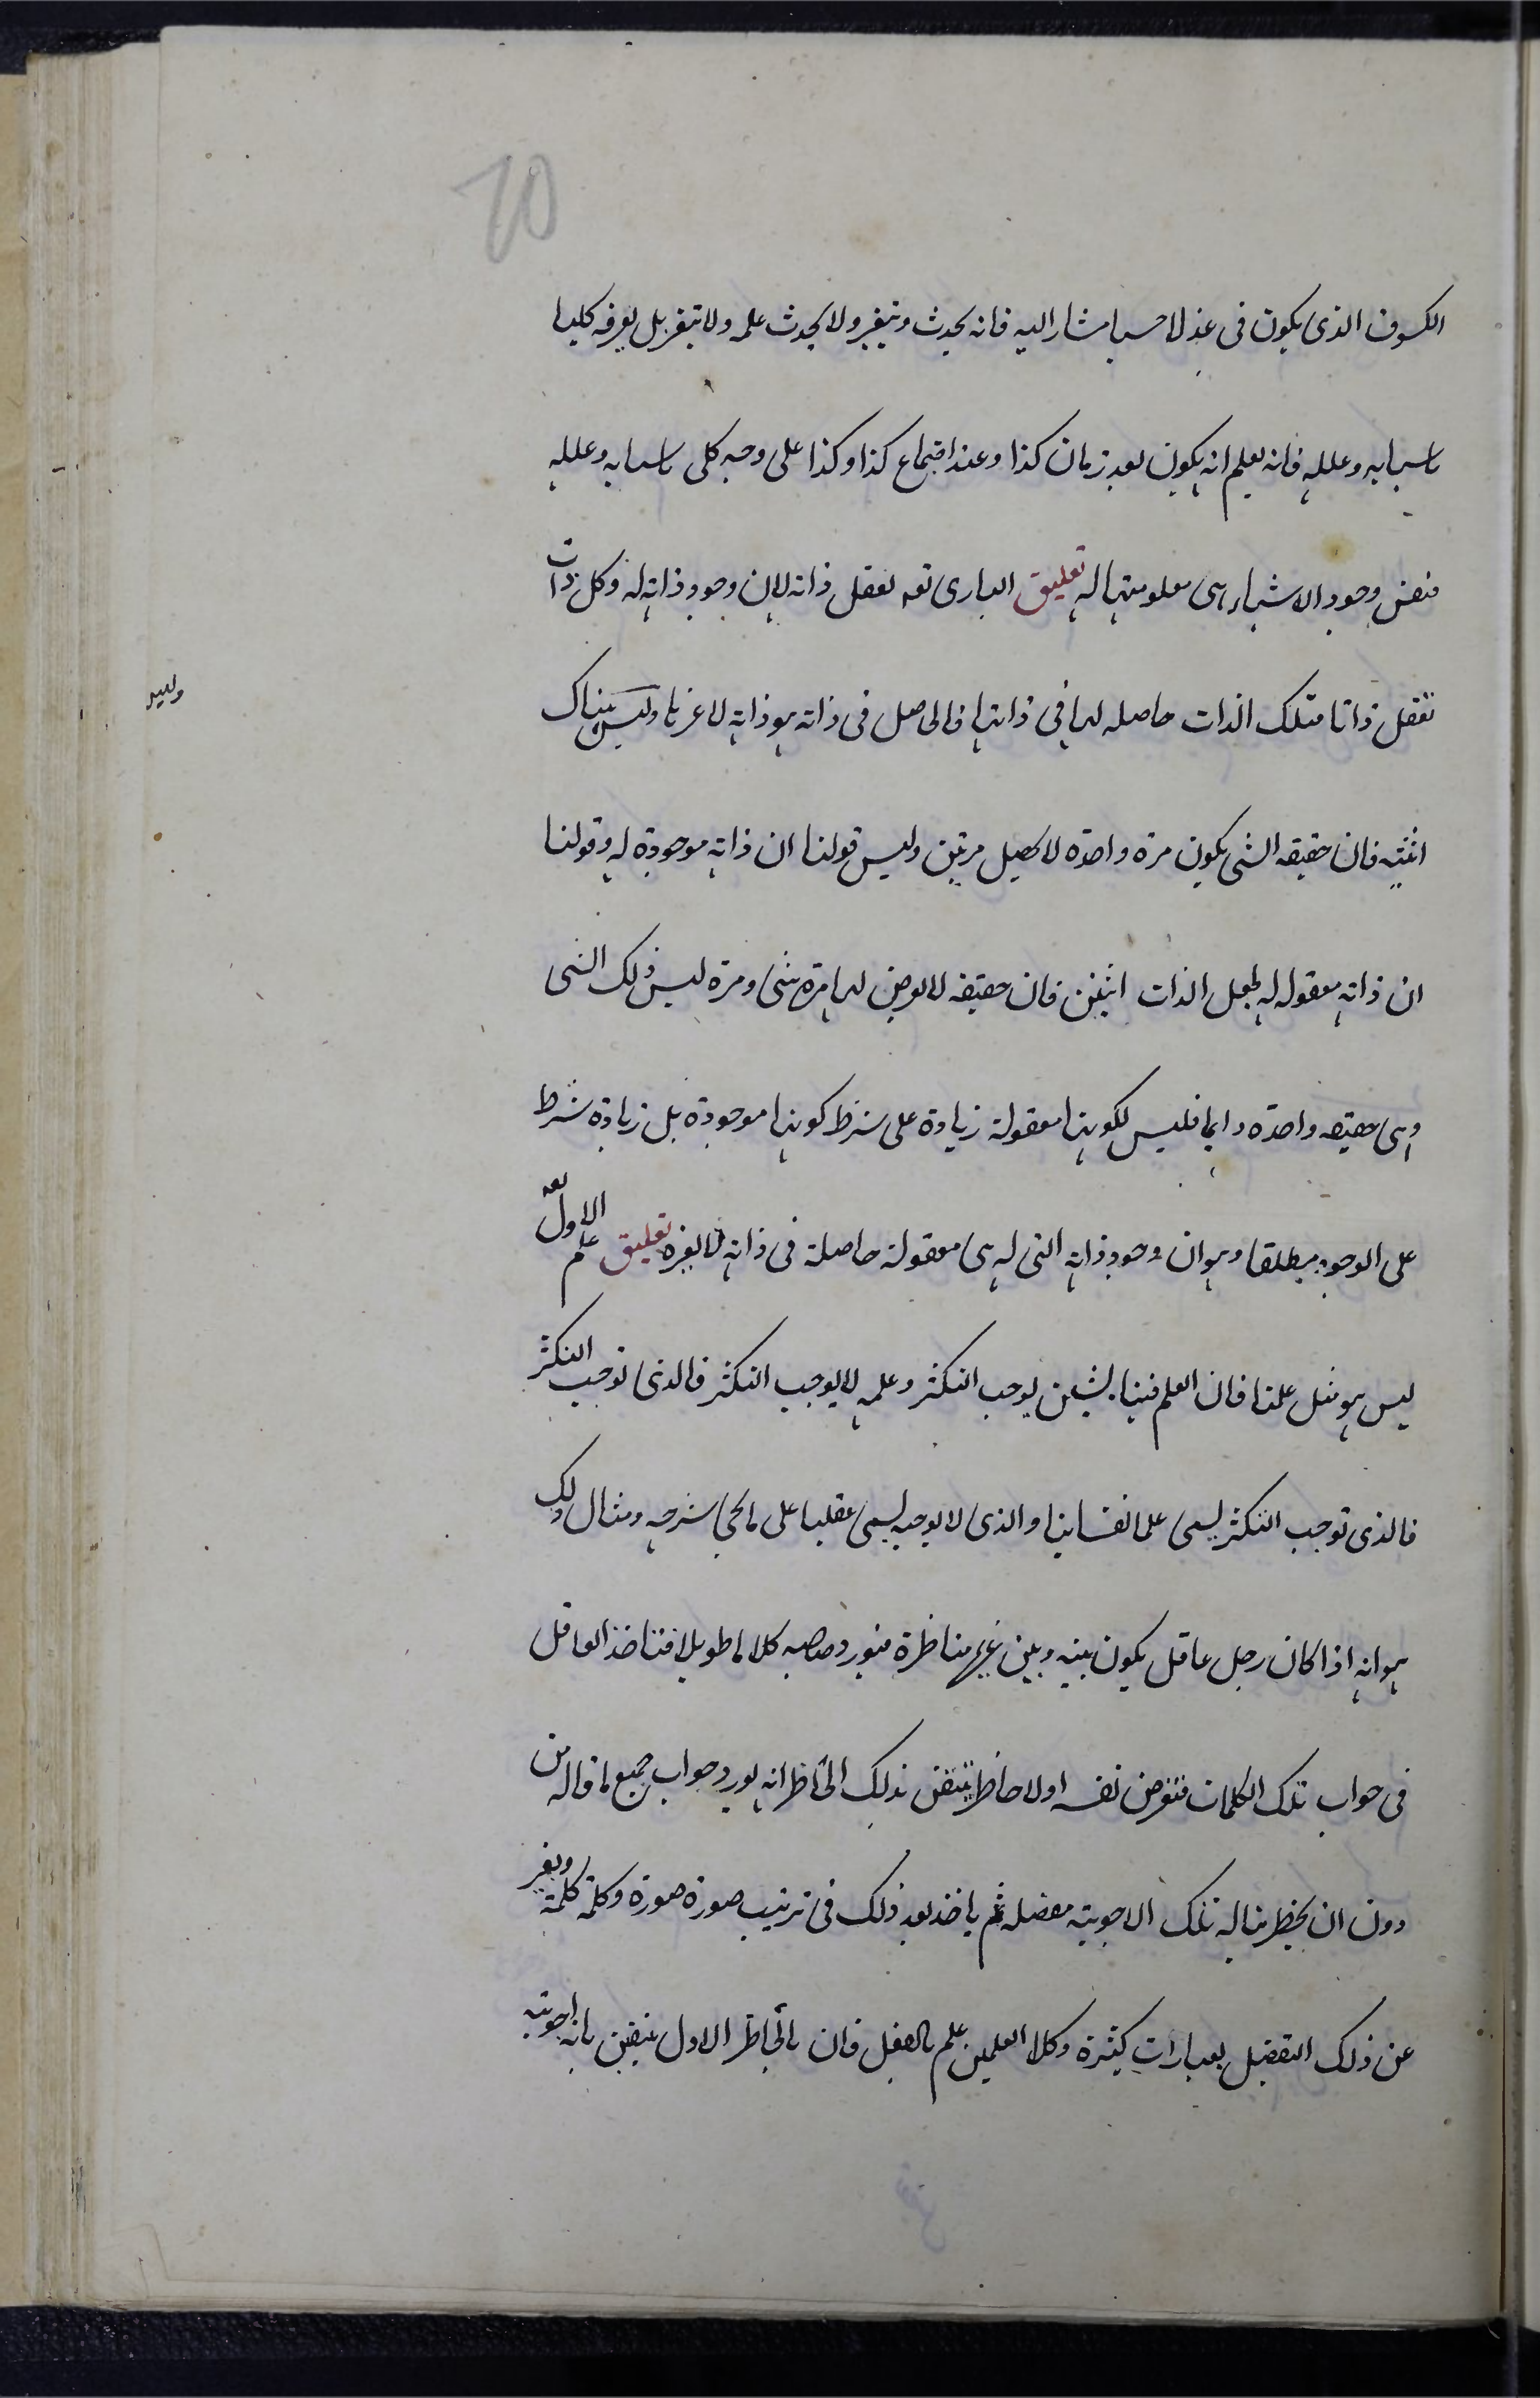 10
الكسوف الذى يكون فى غد لا حسيا مشار اليه فانه يحدث ويتغير ولا يحدث علمه ولا يتغير بل يعرفه كليا
باسبابه وعلله فانه يعلم انه يكون بعد زمان كذا وعند اجتماع كذا وكذا على وجه كلى باسبابه وعلله
فنفس وجود الاشياء هى معلوميتها له تعليق البارى تعه يعقل ذاته لان وجود ذاته له وكل ذات
تعقل ذاتا فتلك الذات حاصله لها فى ذاتها فالحاصل فى ذاته هو ذاته لا غيرها وليس هناك
اثنتيه فان حقيقه الشى يكون مرة واحدة لا يحصل مرتين وليس قولنا ان ذاته موجودة له وقولنا
ان ذاته معقوله له يجعل الذات اثنين فان حقيقه لا يعرض لها مرة شى ومرة ليس ذلك الشى
وهى حقيقه واحدة دايما فليس لكونها معقولة زيادة على شرط كونها موجودة بل زيادة شرط
على الوجود مطلقا وهو ان وجود ذاته التى له هى معقولة حاصلة فى ذاته لا لغيره تعليق علم الاول تعه
ليس هو مثل علمنا فان العلم فينا بشيئين يوجب التكثر وعلمه لا يوجب التكثر فالذى توجب التكثر
فالذى توجب التكثر يسمى علما نفسانيا والذى لا يوجبه يسمى عقليا على ما يحى شرحه ومثال ذلك
هو انه اذا كان رجل عاقل يكون بينه وبين غيره مناظرة فيورد صاحبه كلاما طويلا فياخذ العاقل
فى جواب تلك الكلمات فيعرض نفسه اولا خاطر يتيقن بذلك الخاطر انه يورد جواب جميع ما قاله من
دون ان يخطر بباله تلك الاجوبة مفصله ثم ياخذ بعد ذلك فى ترتيب صورة صورة وكلمة كلمة ويعبر
عن ذلك التفصيل بعبارات كثيرة وكلا العلمين علم بالعفل فان بالخاطر الاول يتيقن بانه اجوبته
وليس